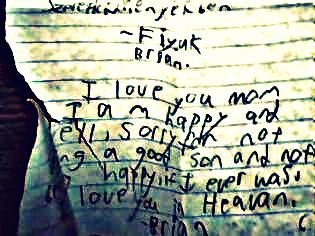 ~Fiyuk
Brian.
I love you mom
I am happy and
sorry for not
a good son and not
happy if I ever was.
love you in Heavan.
-Brian